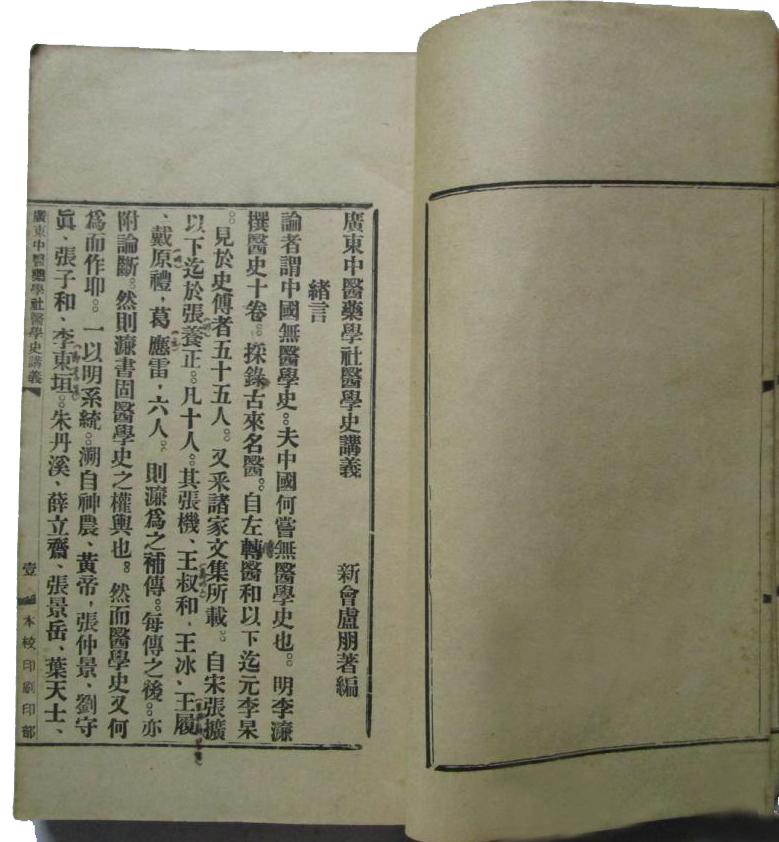 廣東中醫藥學社醫學史講義　新會盧朋著編
緒言
論者謂中國無醫學史。夫中國何嘗無醫學史也。明李濂
撰醫史十卷。採錄古來名醫。自左轉醫和以下迄元李杲
。見於史傳者五十五人。又釆諸家文集所載。自宋張擴
以下迄於張養正。凡十人。其張機、王叔和、王冰、王履
、戴原禮，葛應雷，六人。則濂爲之補傳。每傳之後。亦
附論斷。然則濂書固醫學史之權輿也。然而醫學史又何
爲而作耶。一以明系統。溯自神農、黃帝，張仲景、劉守
眞、張子和、李東垣。朱丹溪、薛立齋、張景岳、葉天士、
廣東中醫藥學社醫學史講義　壹　本校印刷印部